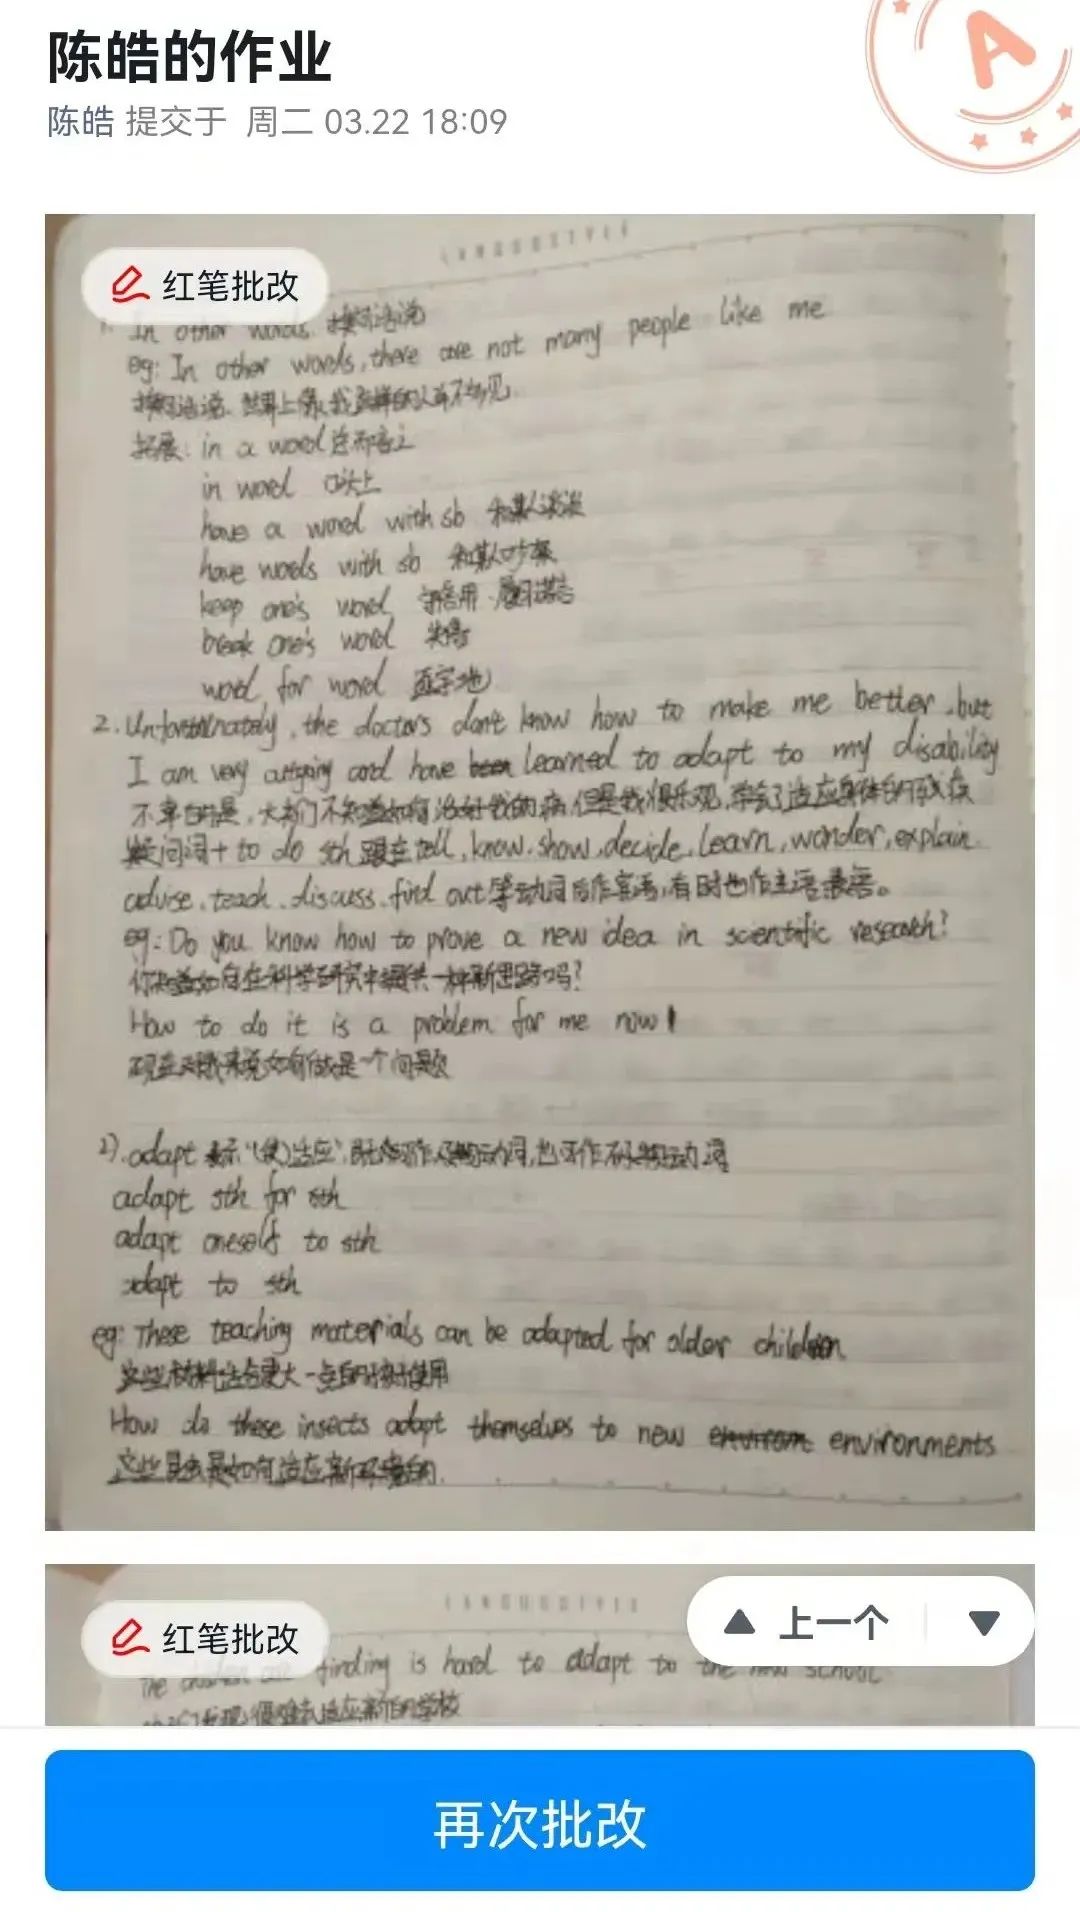 陈皓的作业
陈皓 提交于 周二 03.22 18:09
A
红笔批改
1. In other words 换句话说
eg: In other words, there are not many people like me
换句话说、世界上像我这样的人并不多见.
拓展: in a word 总而言之
in word 口头上
have a word with sb 和某人谈谈
have words with sb 和某人吵架
keep one's word 守信用、履行诺言
break one's word 失信
word for word 逐字地
2. Unfortunately, the doctors don't know how to make me better, but
I am very outgoing and have learned to adapt to my disability
不幸的是, 大夫们不知道如何治好我的病, 但是我很乐观, 学会了适应身体的残疾
疑问词 + to do sth 跟在 tell, know, show, decide, learn, wonder, explain
advise, teach, discuss, find out 等动词后作宾语, 有时也作主语表语。
eg: Do you know how to prove a new idea in scientific research?
你知道如何在科学研究中提供一种新思路吗?
How to do it is a problem for me now!
现在对我来说如何做是一个问题
2). adapt 表示“(使)适应”, 既可作及物动词, 也可作不及物动词
adapt sth for sth
adapt oneself to sth
adapt to sth
eg: These teaching materials can be adapted for older children
这些材料适合更大一点的孩子使用
How do these insects adapt themselves to new environments
这些昆虫是如何适应新环境的.
红笔批改
上一个
finding is hard to adapt to the new school
发现很难去适应新的学校
再次批改